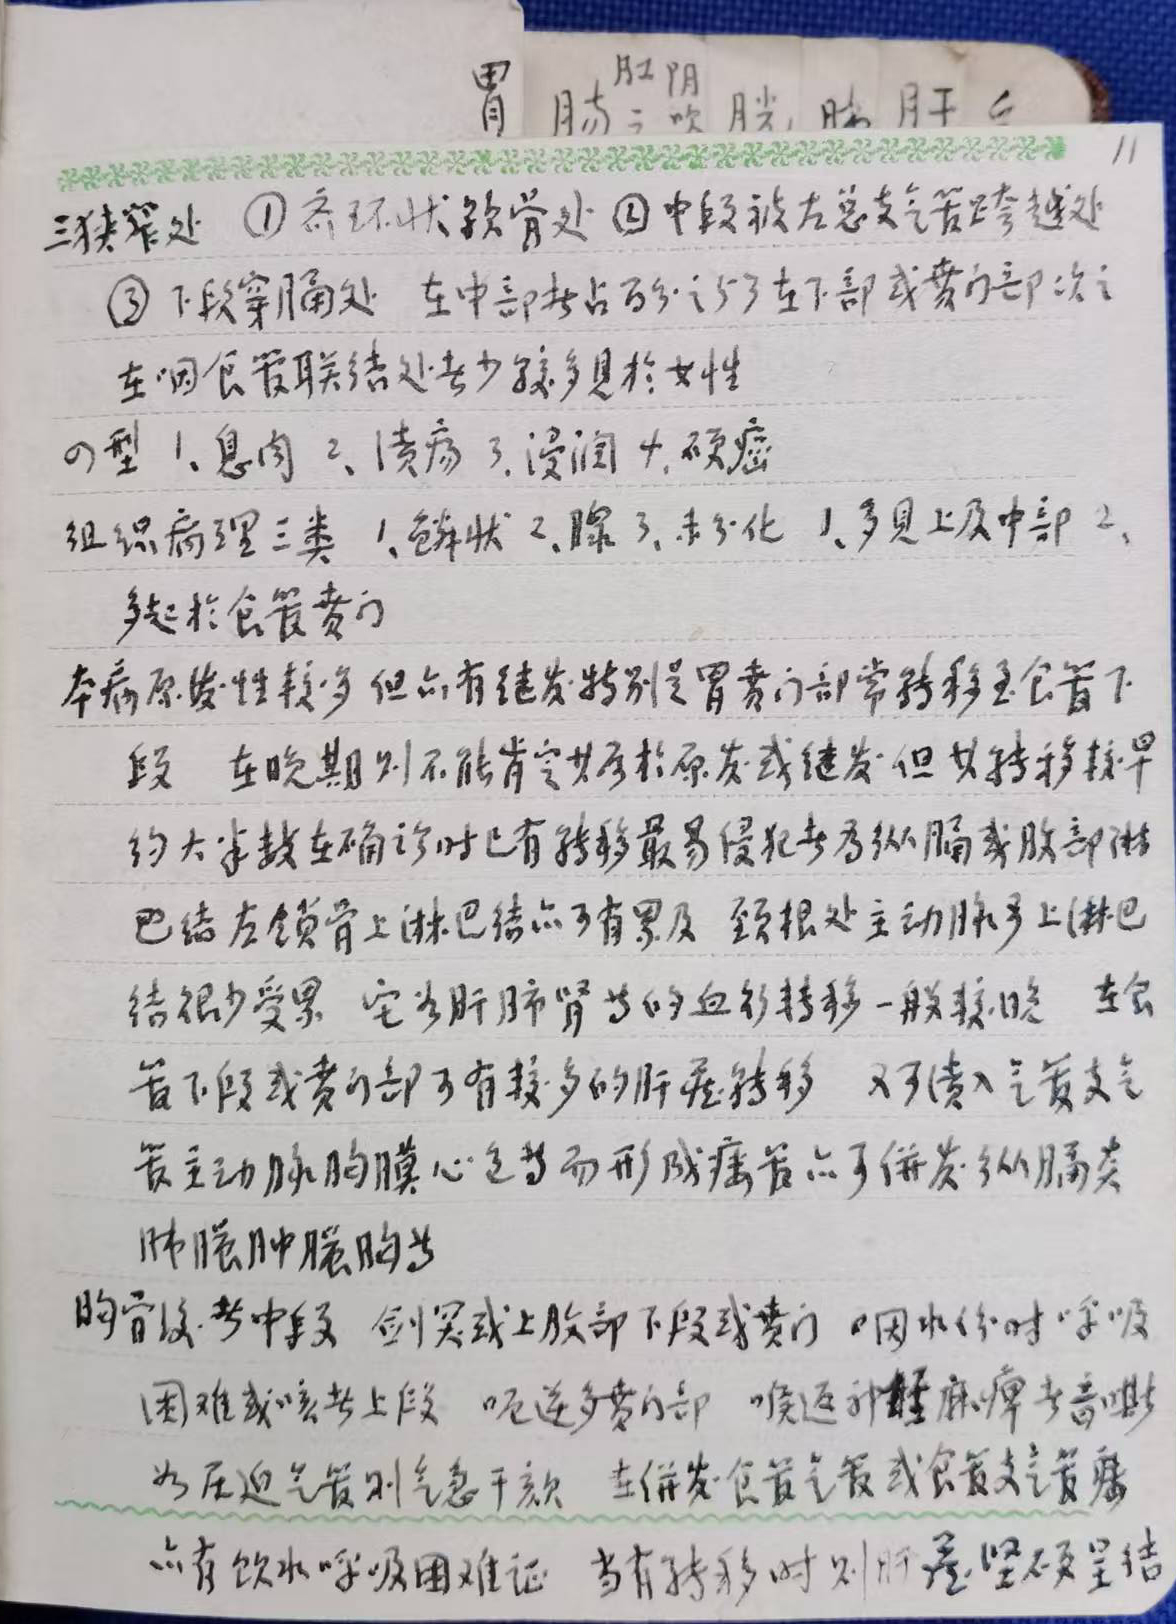 胃 肠 肛 阴 吹 膀 胰 肝
11
三狭窄处 ①在环状软骨处 ②中段被左总支气管跨越处
③下段穿膈处 在中部者占百分之50 在下部或贲门部次之
在咽食管联结处者少 较多見於女性
の型 1、息肉 2、溃疡 3、浸润 4、硬癌
组织病理三类 1、鳞状 2、腺 3、未分化 1、多見上及中部 2、
多起於食管贲门
本病原发性较多 但亦有继发 特别是胃贲门部常转移至食管下
段 在晚期则不能肯定其属於原发或继发 但其转移较早
约大半数在确诊时已有转移 最易侵犯者为纵膈或腹部淋
巴结 左锁骨上淋巴结亦可有累及 颈根处主动脉弓上淋巴
结很少受累 它如肝肺肾等的血行转移一般较晚 在食
管下段或贲门部可有较多的肝脏转移 又可溃入气管支气
管主动脉胸膜心包等而形成瘘管 亦可併发纵膈炎
肺脓肿脓胸等
胸骨后者中段 剑突或上腹部下段或贲门 咽水份时呼吸
困难或咳者上段 呃逆多贲门部 喉返神经麻痹者音嘶
如压迫气管则气急干咳 在併发食管气管或食管支气管瘘
亦有饮水呼吸困难证 当有转移时则肝 坚硬呈结